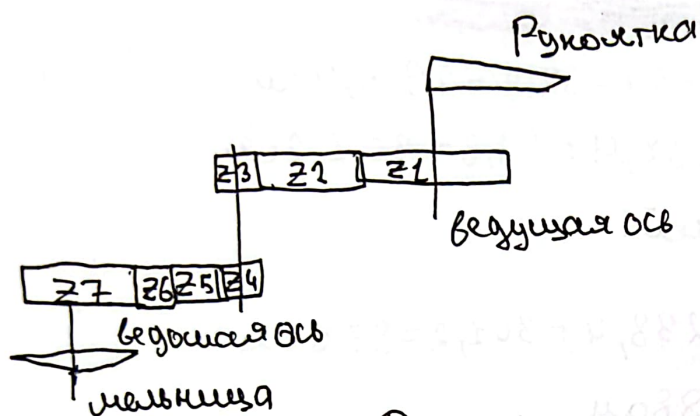 Рукоятка
Z3 Z2 Z1
ведущая ось
Z7 Z6 Z5 Z4
ведомая ось
мельница